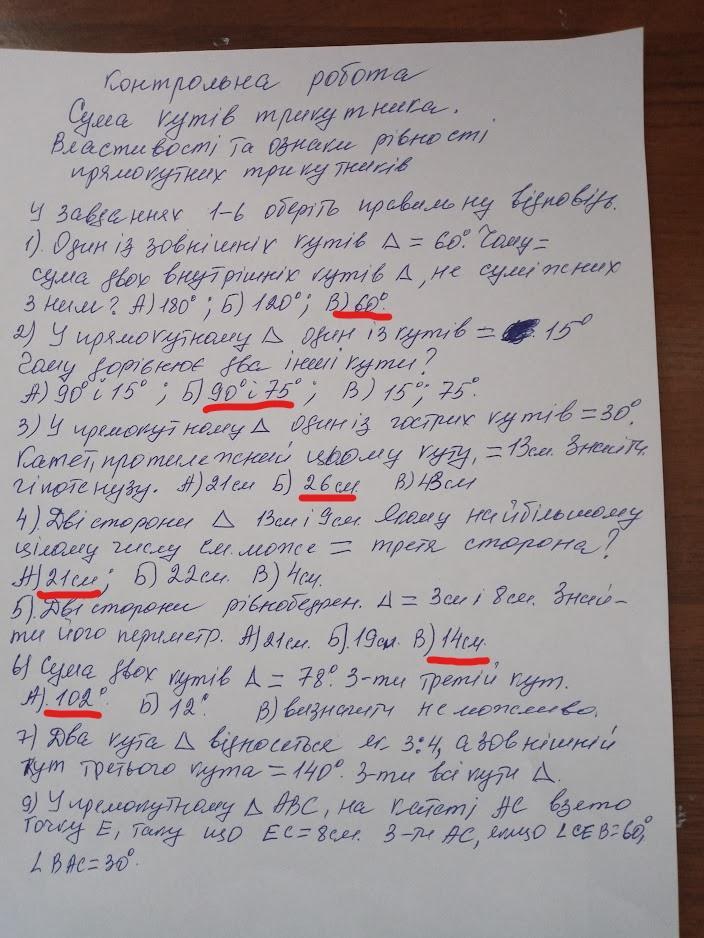 Контрольна робота
Сума кутів трикутника.
Властивості та ознаки рівності
прямокутних трикутників
У завданнях 1-6 оберіть правильну відповідь.
1). Один із зовнішніх кутів Δ = 60°. Чому =
сума двох внутрішніх кутів Δ, не суміжних
з ним? А) 180°; Б) 120°; В) 60°.
2) У прямокутному Δ один із кутів = 15°
Чому дорівнює два інші кути?
А) 90° і 15°; Б) 90° і 75°; В) 15°; 75°.
3) У прямокутному Δ один із гострих кутів = 30°.
Катет, протилежний цьому куту, = 13см. Знайти
гіпотенузу. А) 21см Б) 26см В) 43см
4). Дві сторони Δ 13см і 9см. Якому найбільшому
цілому числу см. може = третя сторона?
А) 21см; Б) 22см. В) 4см.
5). Дві сторони рівнобедрен. Δ = 3см і 8см. Знай-
ти його периметр. А) 21см. Б) 19см. В) 14см.
6) Сума двох кутів Δ = 78°. З-ти третій кут.
А). 102°. Б) 12°. В) визначити неможливо.
7) Два кута Δ відносяться як 3:4, а зовнішній
кут третього кута = 140°. З-ти всі кути Δ.
9) У прямокутному Δ АВС, на катеті АС взято
точку Е, таку що ЕС=8см. З-ти АС, якщо ∠СЕВ=60°,
∠ВАС=30°.